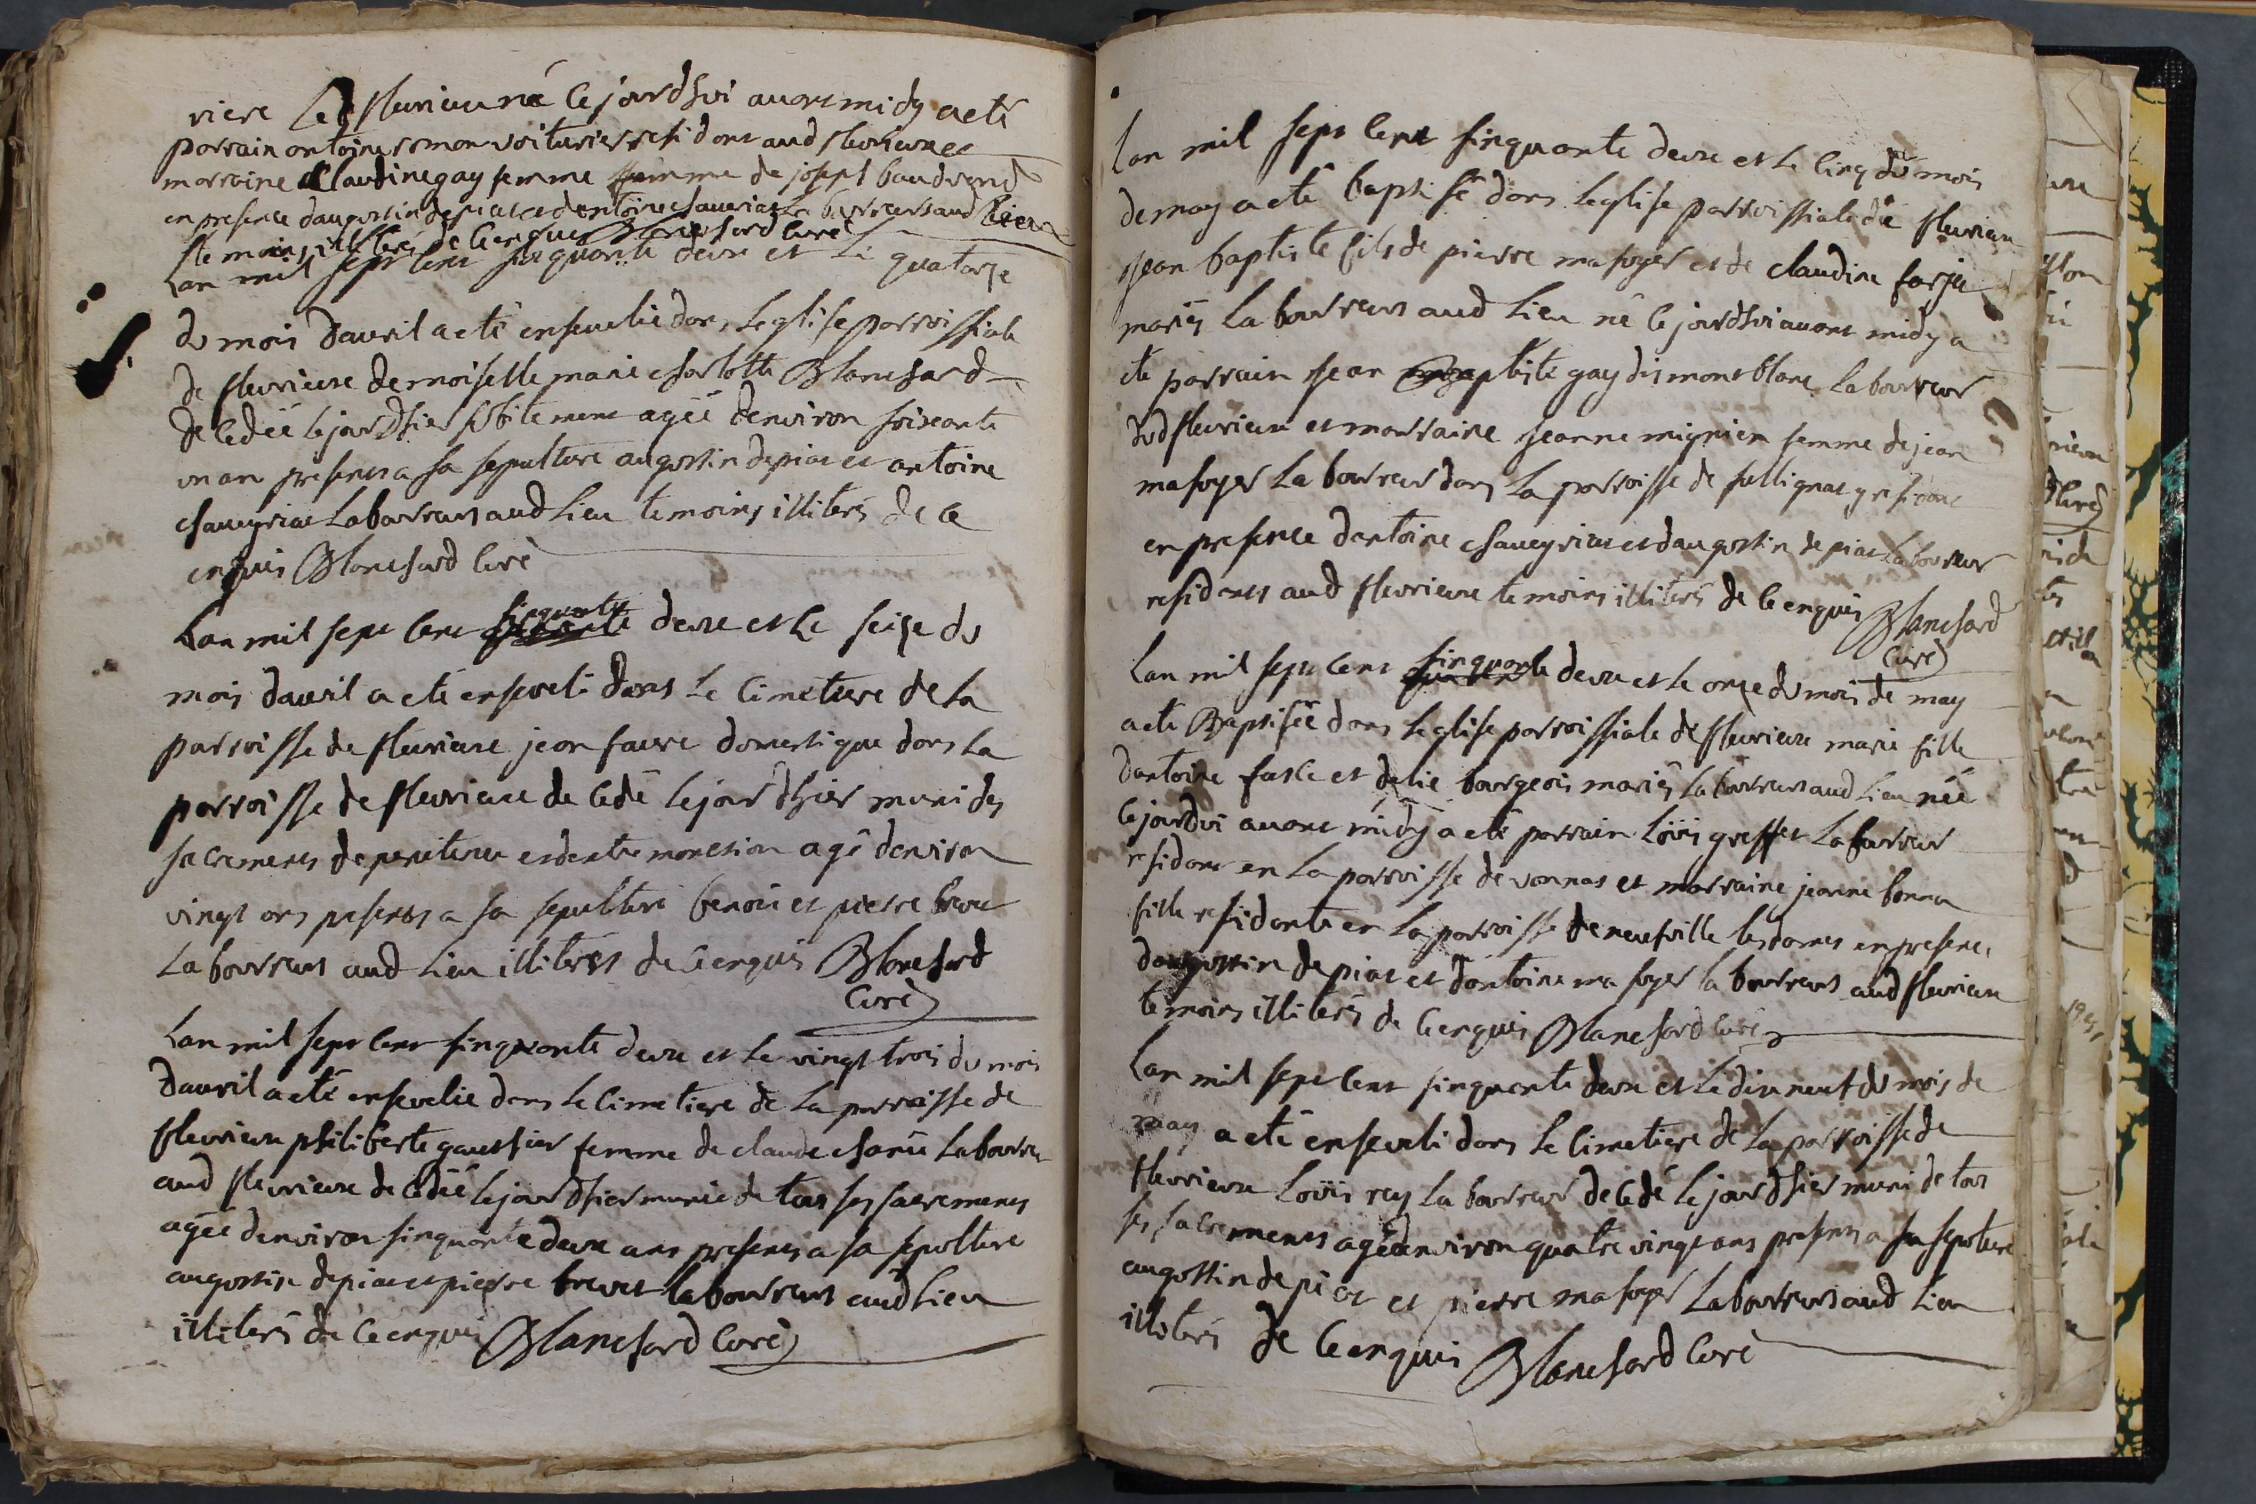 riere fleurieux né ce jourdhui avant midy a eté
parrain antoine romon voiturier resident aud fleurieux et
marraine Claudine gay femme femme de joseph baudrand
en presence daugustin depiat et dantoine chaveiriat laboureurs aud lieu
te moins illiterés de ce enquis Blanchard curé
Lan mil sept cent sinquante deux et le quatorze
du mois davril a eté ensevelie dans leglise parroissiale
de fleurieux demoiselle marie charlotte Blanchard
decedeé le jourdhier subitement ageé denviron soixante
un an presents a sa sepulture augustin depiat et antoine
chaveyriat laboureurs aud lieu temoins illiterés de ce
enquis Blanchard curé
Lan mil sept cent sinquante deux et le seize du
mois davril a eté enseveli dans le cimetiere de la
parroisse de fleurieux jean favre domestique dans la
parroisse de fleurieux decedé le jourdhier muni des
sacrements de penitence et dextre monction agé denviron
vingt ans presents a sa sepulture benoit et pierre brevet
laboureurs aud lieu illiterés de ce enquis Blanchard
curé
Lan mil sept cent sinquante deux et le vingt trois du mois
davril a eté ensevelie dans le cimetiere de la parroisse de
fleurieux philiberte gauthier femme de claude laboureur
aud fleurieux decedeé le jourdhier munie de tous ses sacrements
ageé denviron sinquante deux ans presents a sa sepulture
augustin depiat et pierre brevet laboureurs aud lieu
illiterés de ce enquis Blanchard curé
Lan mil sept cent sinquante deux et le cinq du mois
de may a eté baptisé dans leglise parroissiale de fleurieux
jean baptiste fils de pierre mafoyer et de claudine farje
mariés laboureurs aud lieu né ce jourdhui avant midy a
eté parrain jean baptiste gay dit montblanc laboureur
dud fleurieux et marraine jeanne mignien femme de jean
mafoyer laboureur dans la parroisse de sullignat y residant
en presence dantoine chaveyriat et daugustin depiat laboureur
residents aud fleurieux temoins illiterés de ce enquis Blanchard
curé
Lan mil sept cent sinquante deux et le onze du mois de may
a eté Baptiseé dans leglise parroissiale de fleurieux marie fille
dantoine et delie bourgeois mariés laboureurs aud lieu neé
ce jourdhui avant midy a eté parrain loüis greffet laboureur
residant en la parroisse de vonnas et marraine jeanne bonna
fille residante en la parroisse de neufville les dames en presence
daugustin depiat et dantoine mafoyer laboureurs aud fleurieux
temoins illiterés de ce enquis Blanchard curé
Lan mil sept cent sinquante deux et le dix neuf du mois de
may a eté enseveli dans le cimetiere de la parroisse de
fleurieux loüis rey laboureur decedé le jourdhier muni de tous
ses sacrements agé denviron quatre vingt ans presents a sa sepulture
augustin depiat et pierre mafoyer laboureurs aud lieu
illiterés de ce enquis Blanchard curé